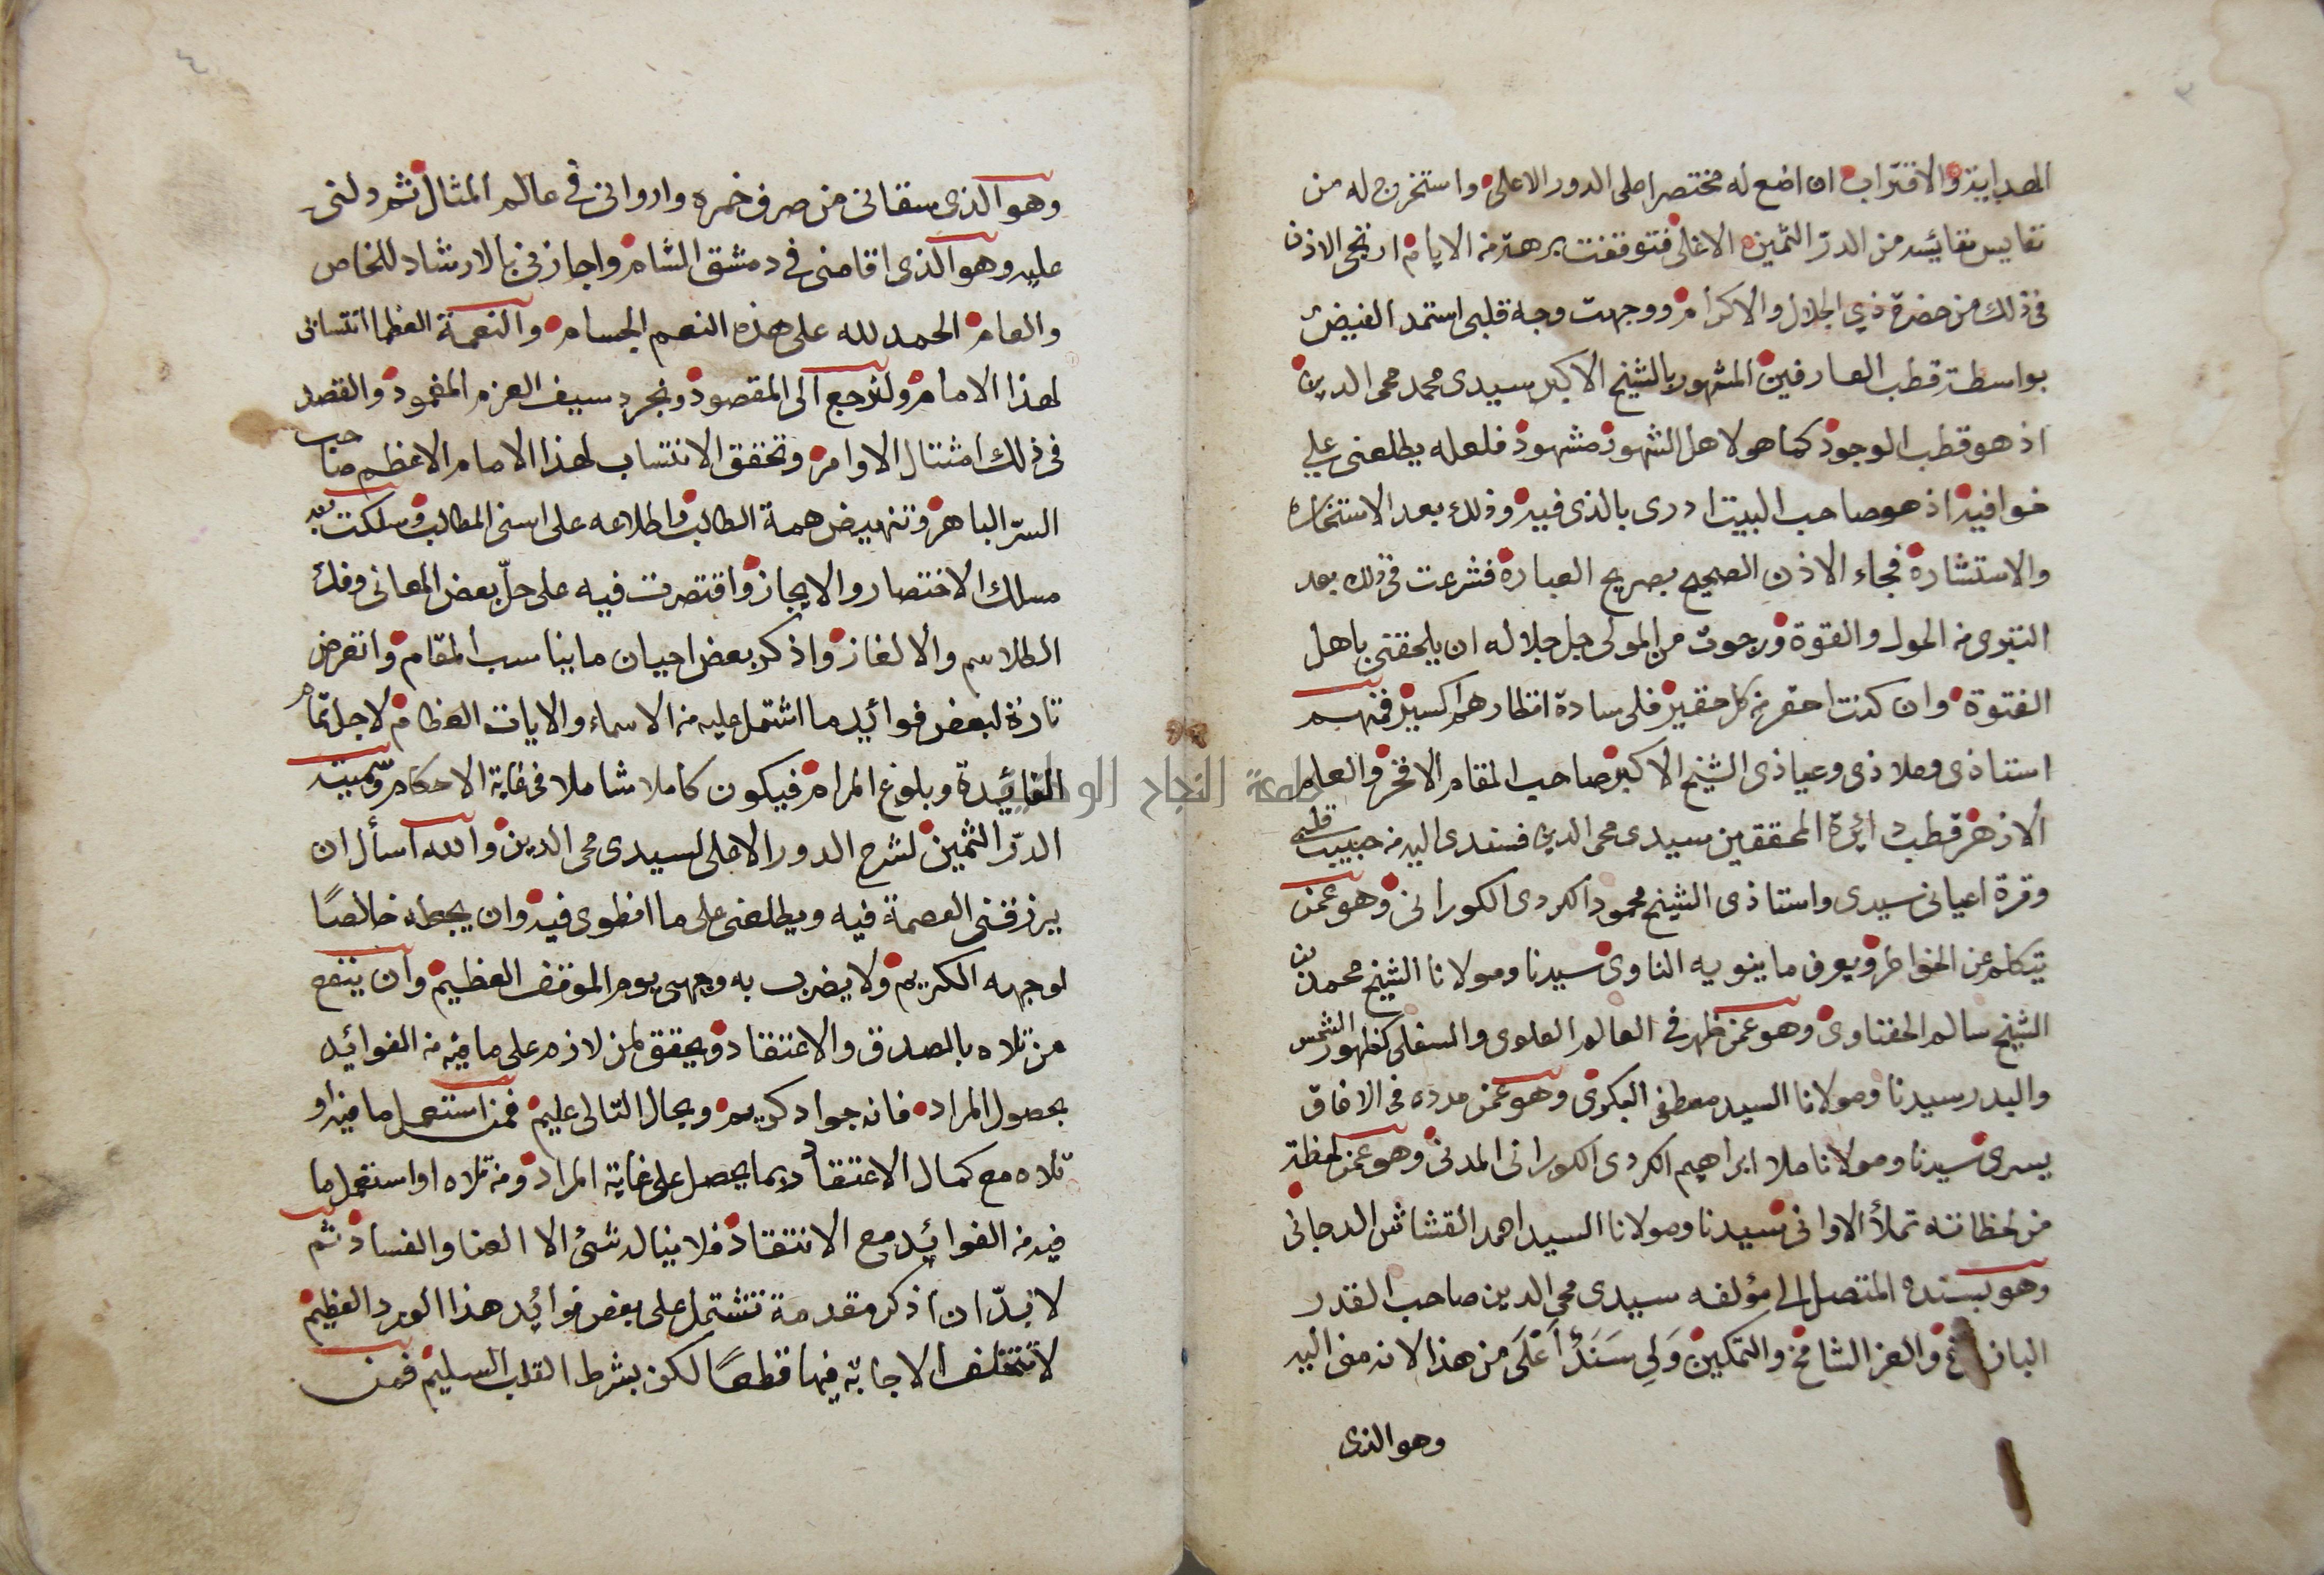 ٣
الهداية والاقتراب ان اضع له مختصرا على الدور الاعلى واستخرج له من
نفايس نفائسه من الدر الثمين الاغلى فتوقفت برهة من الايام ارتجى الاذن
فى ذلك من حضرة ذي الجلال والاكرام ووجهت وجه قلبى استمد الفيض
بواسطة قطب العارفين المشهور بالشيخ الاكبر سيدى محمد محى الدين
اذ هو قطب الوجود كما هو لاهل الشهود مشهود فلعله يطلعنى على
خوافيه اذ هو صاحب البيت ادرى بالذى فيه وذلك بعد الاستخارة
والاستشارة فجاء الاذن الصحيح بصريح العبارة فشرعت فى ذلك بعد
التبرى من الحول والقوة ورجوت من المولى جل جلاله ان يلحقنى باهل
الفتوة وان كنت احقر من كل حقير فلى سادة انظارهم اكسير فمنهم
استاذى وملاذى وعياذى الشيخ الاكبر صاحب المقام الافخر والعلم
الازهر قطب دائرة المحققين سيدى محى الدين فسندى اليه من حبيب قلبى
وقرة اعيانى سيدى واستاذى الشيخ محمود الكردى الكورانى وهو عمن
يتكلم عن الخواطر ويعرف ما ينويه الناوى سيدنا ومولانا الشيخ محمد بن
الشيخ سالم الحفناوى وهو عمن ظهر فى العالم العلوى والسفلى كظهور الشمس
والبدر سيدنا ومولانا السيد مصطفى البكرى وهو عمن مدده فى الافاق
يسرى سيدنا ومولانا ملا ابراهيم الكردى الكورانى المدنى وهو عمن لحظة
من لحظاته تملأ الاوانى سيدنا ومولانا السيد احمد القشاشى الدجانى
وهو بسنده المتصل الى مؤلفه سيدى محى الدين صاحب القدر
الباذخ والعز الشامخ والتمكين وَلِي سَنَدٌ اَعْلَى من هذا لانه منى اليه
وهو الذى
٤
وهو الذى سقانى من صرف خمره واروانى فى عالم المثال ثم دلنى
عليه وهو الذى اقامنى فى دمشق الشام واجازنى بالارشاد للخاص
والعام الحمد لله على هذه النعم الجسام والنعمة العظما انتسابى
لهذا الامام ولنرجع الى المقصود ونجرد سيف العزم المغمود والقصد
فى ذلك امتثال الاوامر وتحقق الانتساب لهذا الامام الاعظم صاحب
السرّ الباهر وتنهيض همة الطالب واطلاعه على اسنى المطالب وسلكت فيه
مسلك الاختصار والايجاز واقتصرت فيه على حلّ بعض المعانى وفك
الطلاسم والالغاز واذكر بعض احيان ما يناسب المقام واتعرض
تارة لبعض فوائد ما اشتمل عليه من الاسماء والايات العظام لاجل تمام
الفائدة وبلوغ المرام فيكون كاملا شاملا فى غاية الاحكام وسميته
الدرّ الثمين لشرح الدور الاعلى لسيدى محى الدين والله اسأل ان
يرزقنى العصمة فيه ويطلعنى على ما انطوى فيه وان يجعله خالصًا
لوجهه الكريم ولا يضرب به وجهى يوم الموقف العظيم وان ينفع
من تلاه بالصدق والاعتقاد ويحقق لمن لازم على ما فيه من الفوائد
بحصول المراد فانه جواد كريم وبحال التالى عليم فمن استعمل ما فيه او
تلاه مع كمال الاعتقاد ربما يحصل على غاية المراد ومن تلاه او استعمل ما
فيه من الفوائد مع الانتقاد فلا يناله شئ الا العنا والفساد ثم
لا بدّ ان اذكر مقدمة تشتمل على بعض فوائد هذا الورد العظيم
لا تتخلف الاجابة فيها قطعًا لكن بشرط القلب السليم فمن